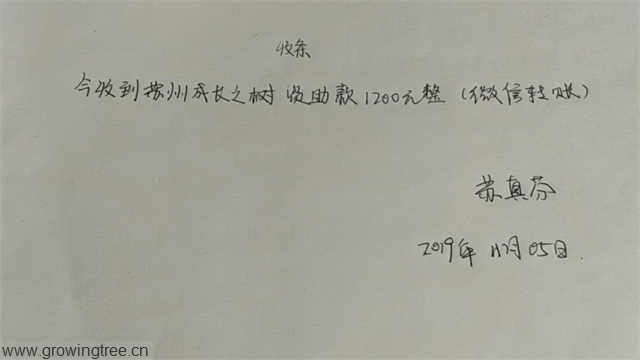 收条
今收到苏州成长之树资助款1200元整（微信转账）
苏真芬
2019年11月05日.
www.growingtree.cn